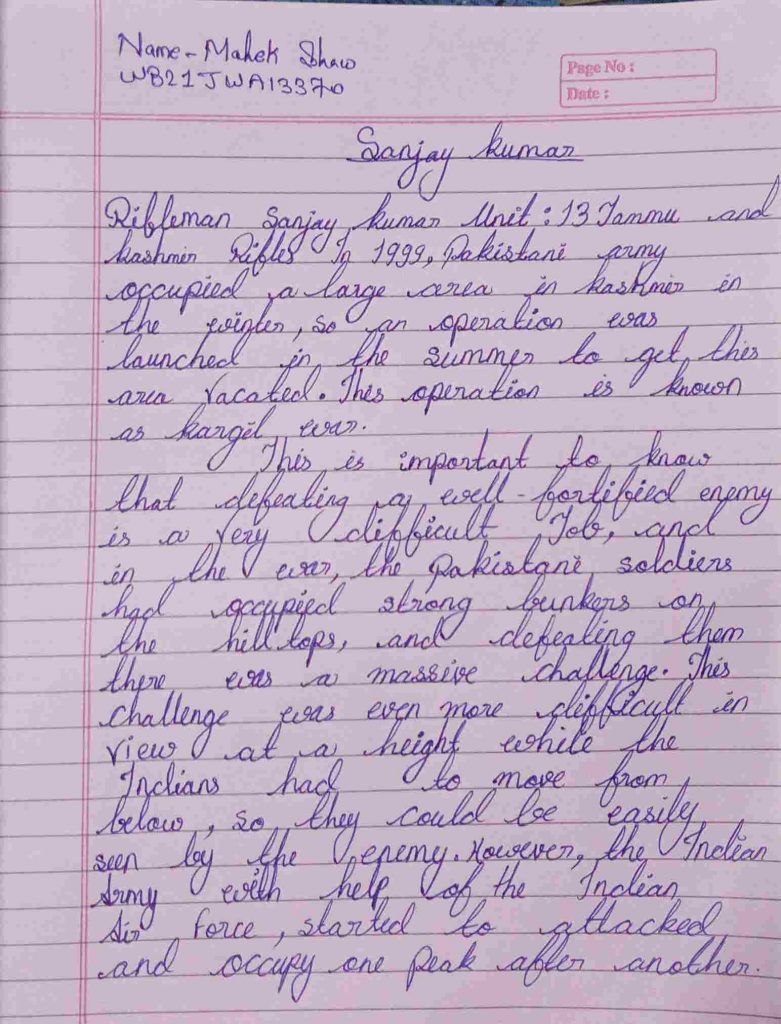 Name - Mahek Shaw
WB21JWA133370
Page No :
Date :
Sanjay kumar
Rifleman Sanjay kumar Unit : 13 Jammu and
kashmir Rifles In 1999, Pakistani army
occupied a large area in kashmir in
the winter, so an operation was
launched in the summer to get this
area vacated. This operation is known
as kargil war.
This is important to know
that defeating a well-fortified enemy
is a very difficult Job, and
in the war, the pakistani soldiers
had occupied strong bunkers on
the hill tops, and defeating them
there was a massive challenge. This
challenge was even more difficult in
view at a height while the
Indians had to move from
below, so they could be easily
seen by the enemy. However, the Indian
Army with help of the Indian
Air Force, started to attacked
and occupy one peak after another.